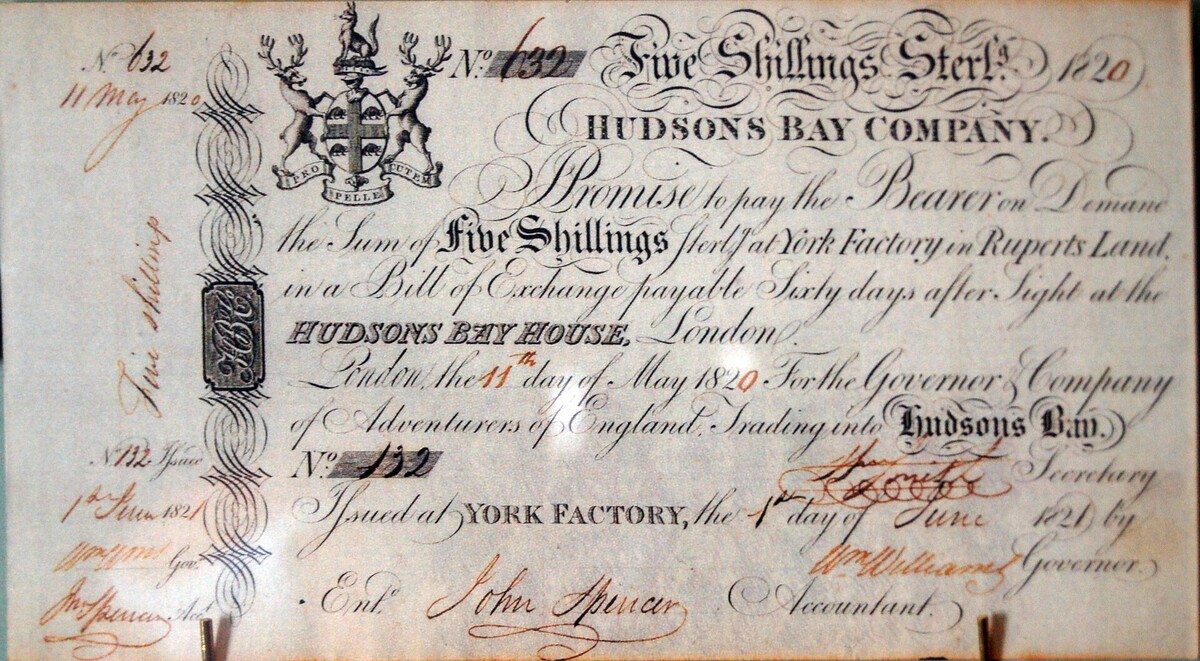 No. 632
11 May 1820
Five shillings
HBCo.
No. 132 Issued
1st June 1821
Gov.
Jno Spencer Acct
PRO PELLE CUTEM
No. 632 Five Shillings Sterlg. 1820
HUDSONS BAY COMPANY.
I Promise to pay the Bearer on Demand
the Sum of Five Shillings Sterlg. at York Factory in Ruperts Land.
in a Bill of Exchange payable Sixty days after Sight at the
HUDSONS BAY HOUSE, London.
London, the 11th day of May 1820 For the Governor & Company
of Adventurers of England, Trading into Hudsons Bay.
No. 132
Secretary
Issued at YORK FACTORY, the 1st day of June 1821 by
Wm Williams Governor.
Entd. John Spencer Accountant.